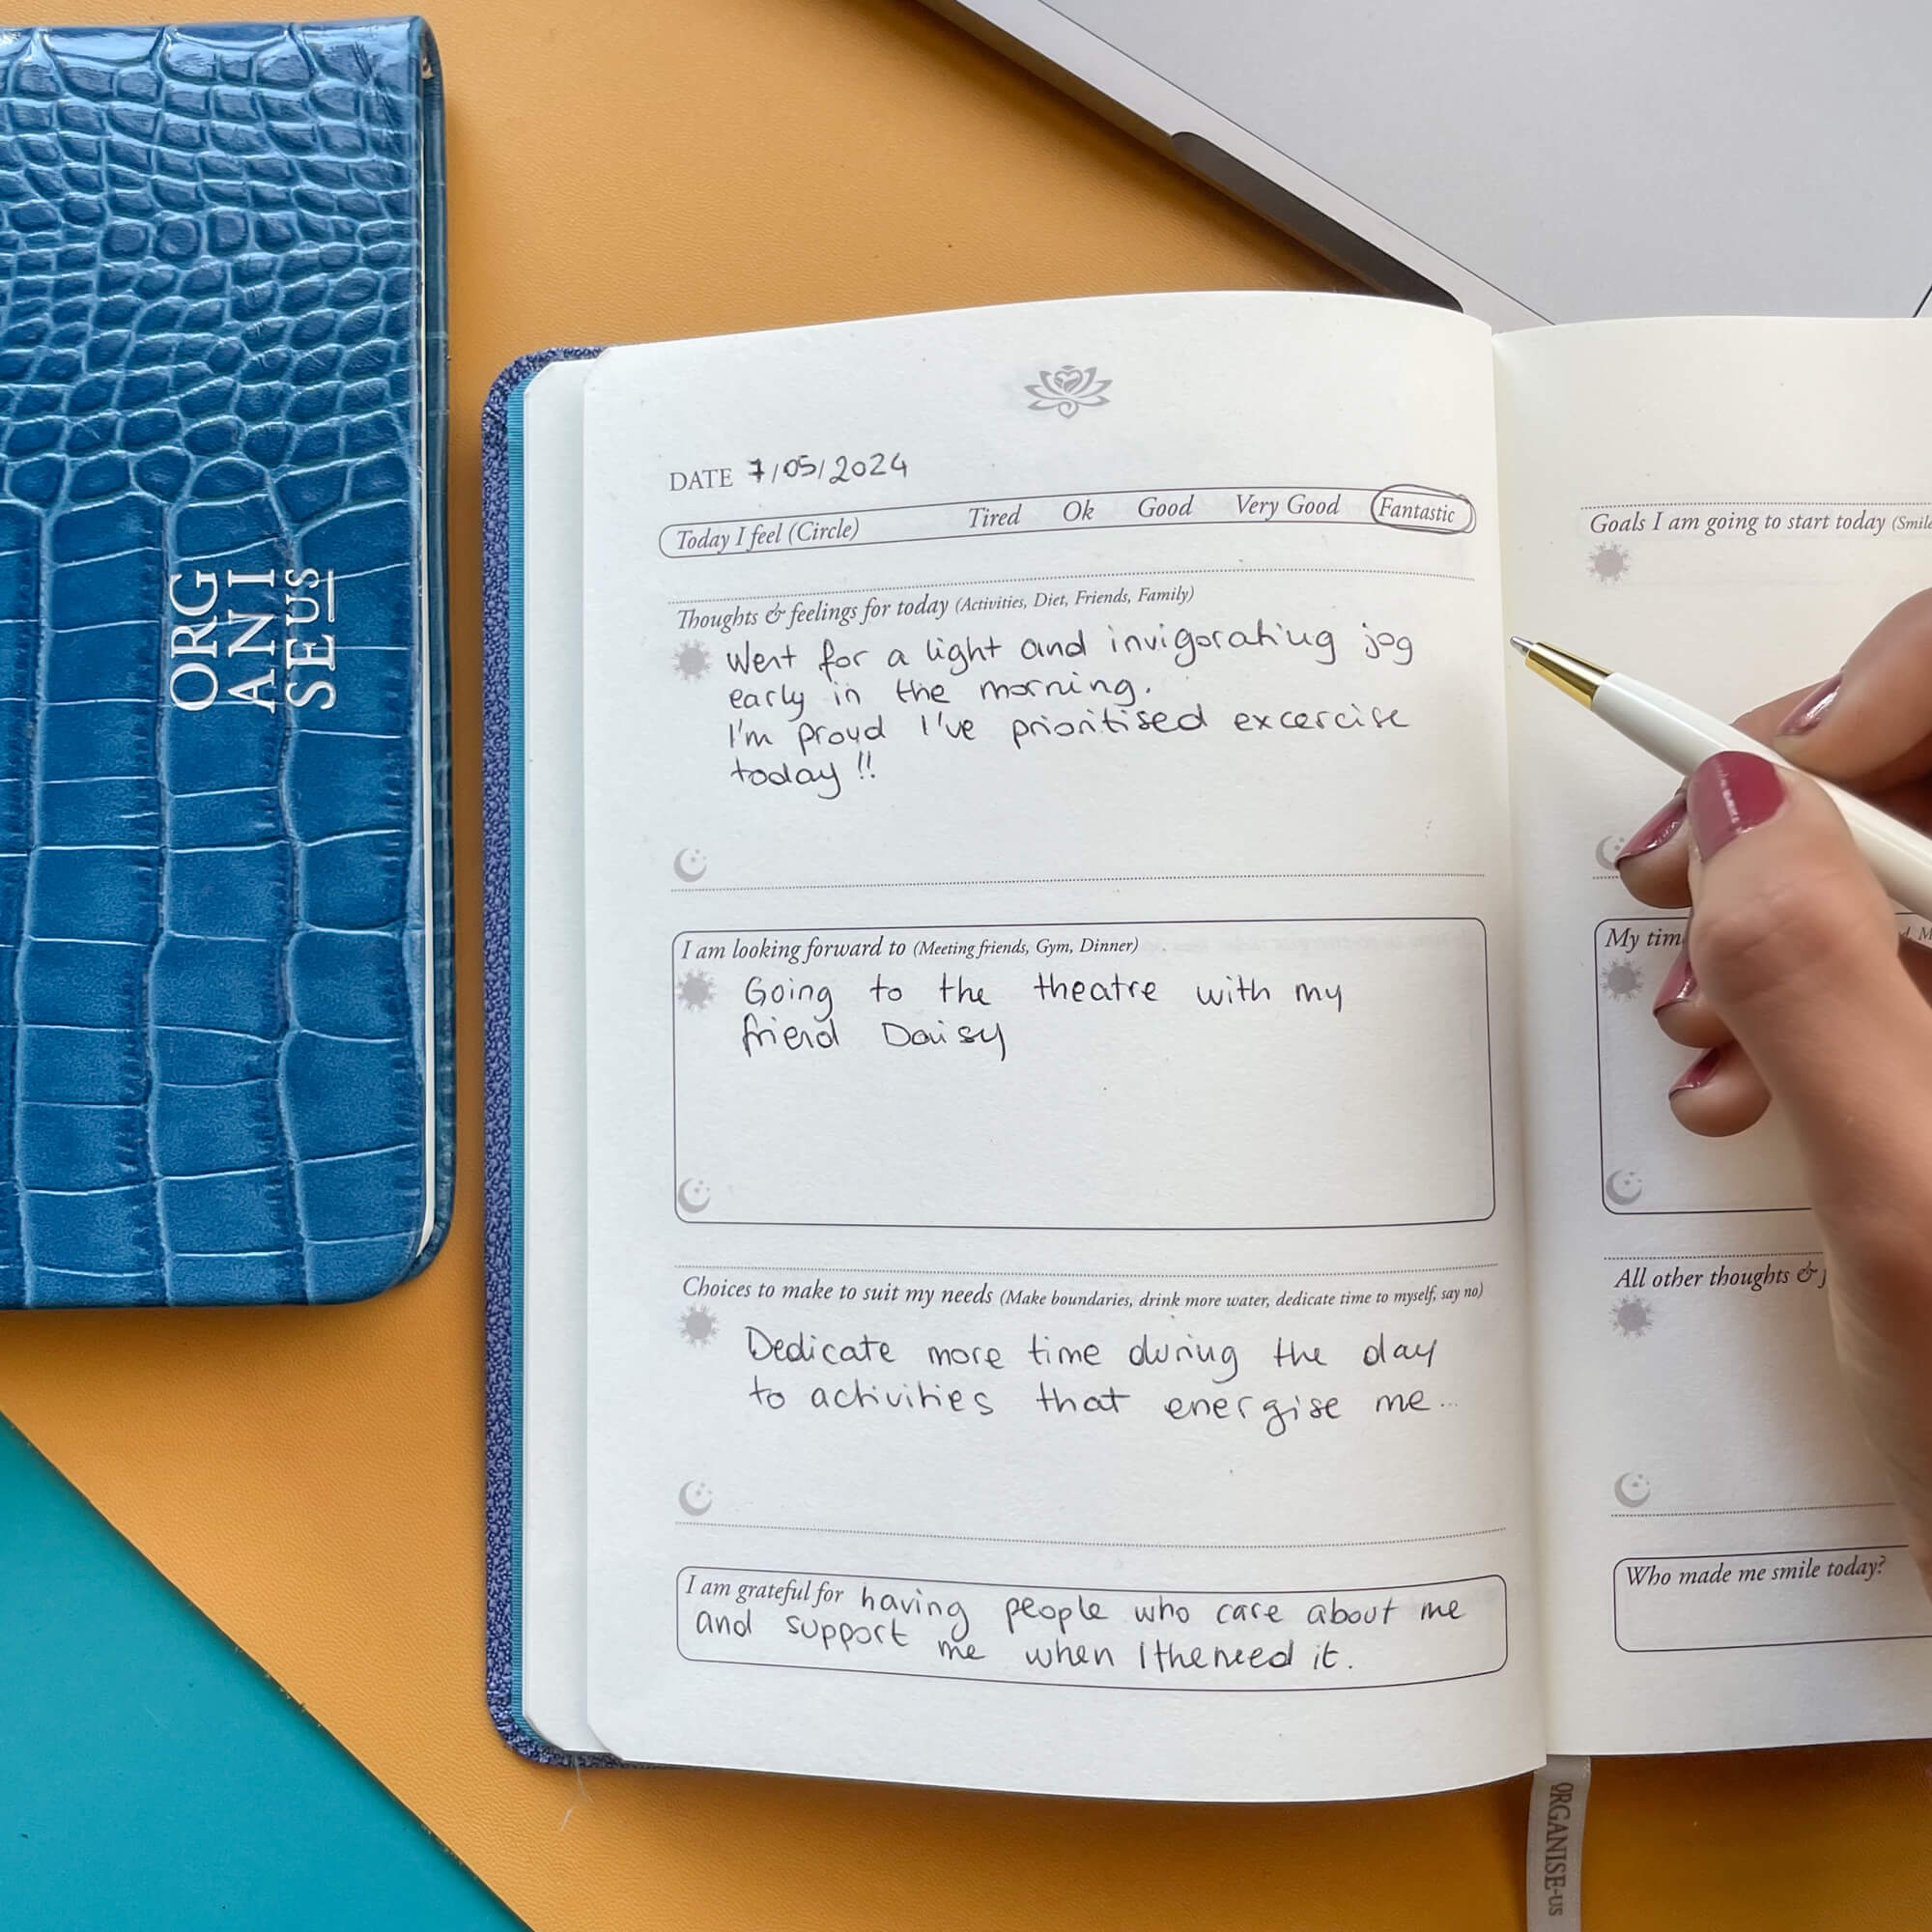 ORG
ANI
SEUS
DATE 7/05/2024
Today I feel (Circle) Tired Ok Good Very Good Fantastic
Thoughts & feelings for today (Activities, Diet, Friends, Family)
Went for a light and invigorating jog
early in the morning.
I'm proud I've prioritised excercise
today!!
I am looking forward to (Meeting friends, Gym, Dinner)
Going to the theatre with my
friend Daisy
Choices to make to suit my needs (Make boundaries, drink more water, dedicate time to myself, say no)
Dedicate more time during the day
to activities that energise me...
I am grateful for having people who care about me
and support me when I the need it.
Goals I am going to start today
My
All other thoughts &
Who made me smile today?
ORGANISE-US